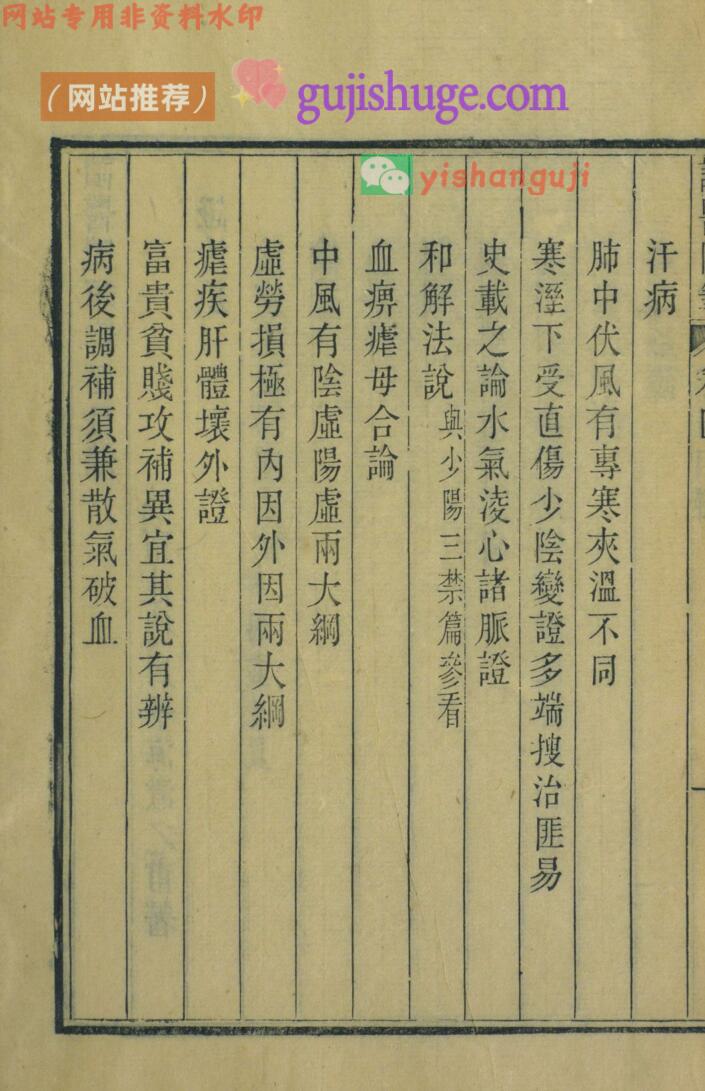 网站专用非资料水印
（网站推荐） gujishuge.com
yishanguji
汗病
肺中伏風有專寒夾溫不同
寒溼下受直傷少陰變證多端搜治匪易
史載之論水氣淩心諸脈證
和解法說與少陽三禁篇參看
血痹瘧母合論
中風有陰虛陽虛兩大綱
虛勞損極有內因外因兩大綱
瘧疾肝體壞外證
富貴貧賤攻補異宜其說有辨
病後調補須兼散氣破血